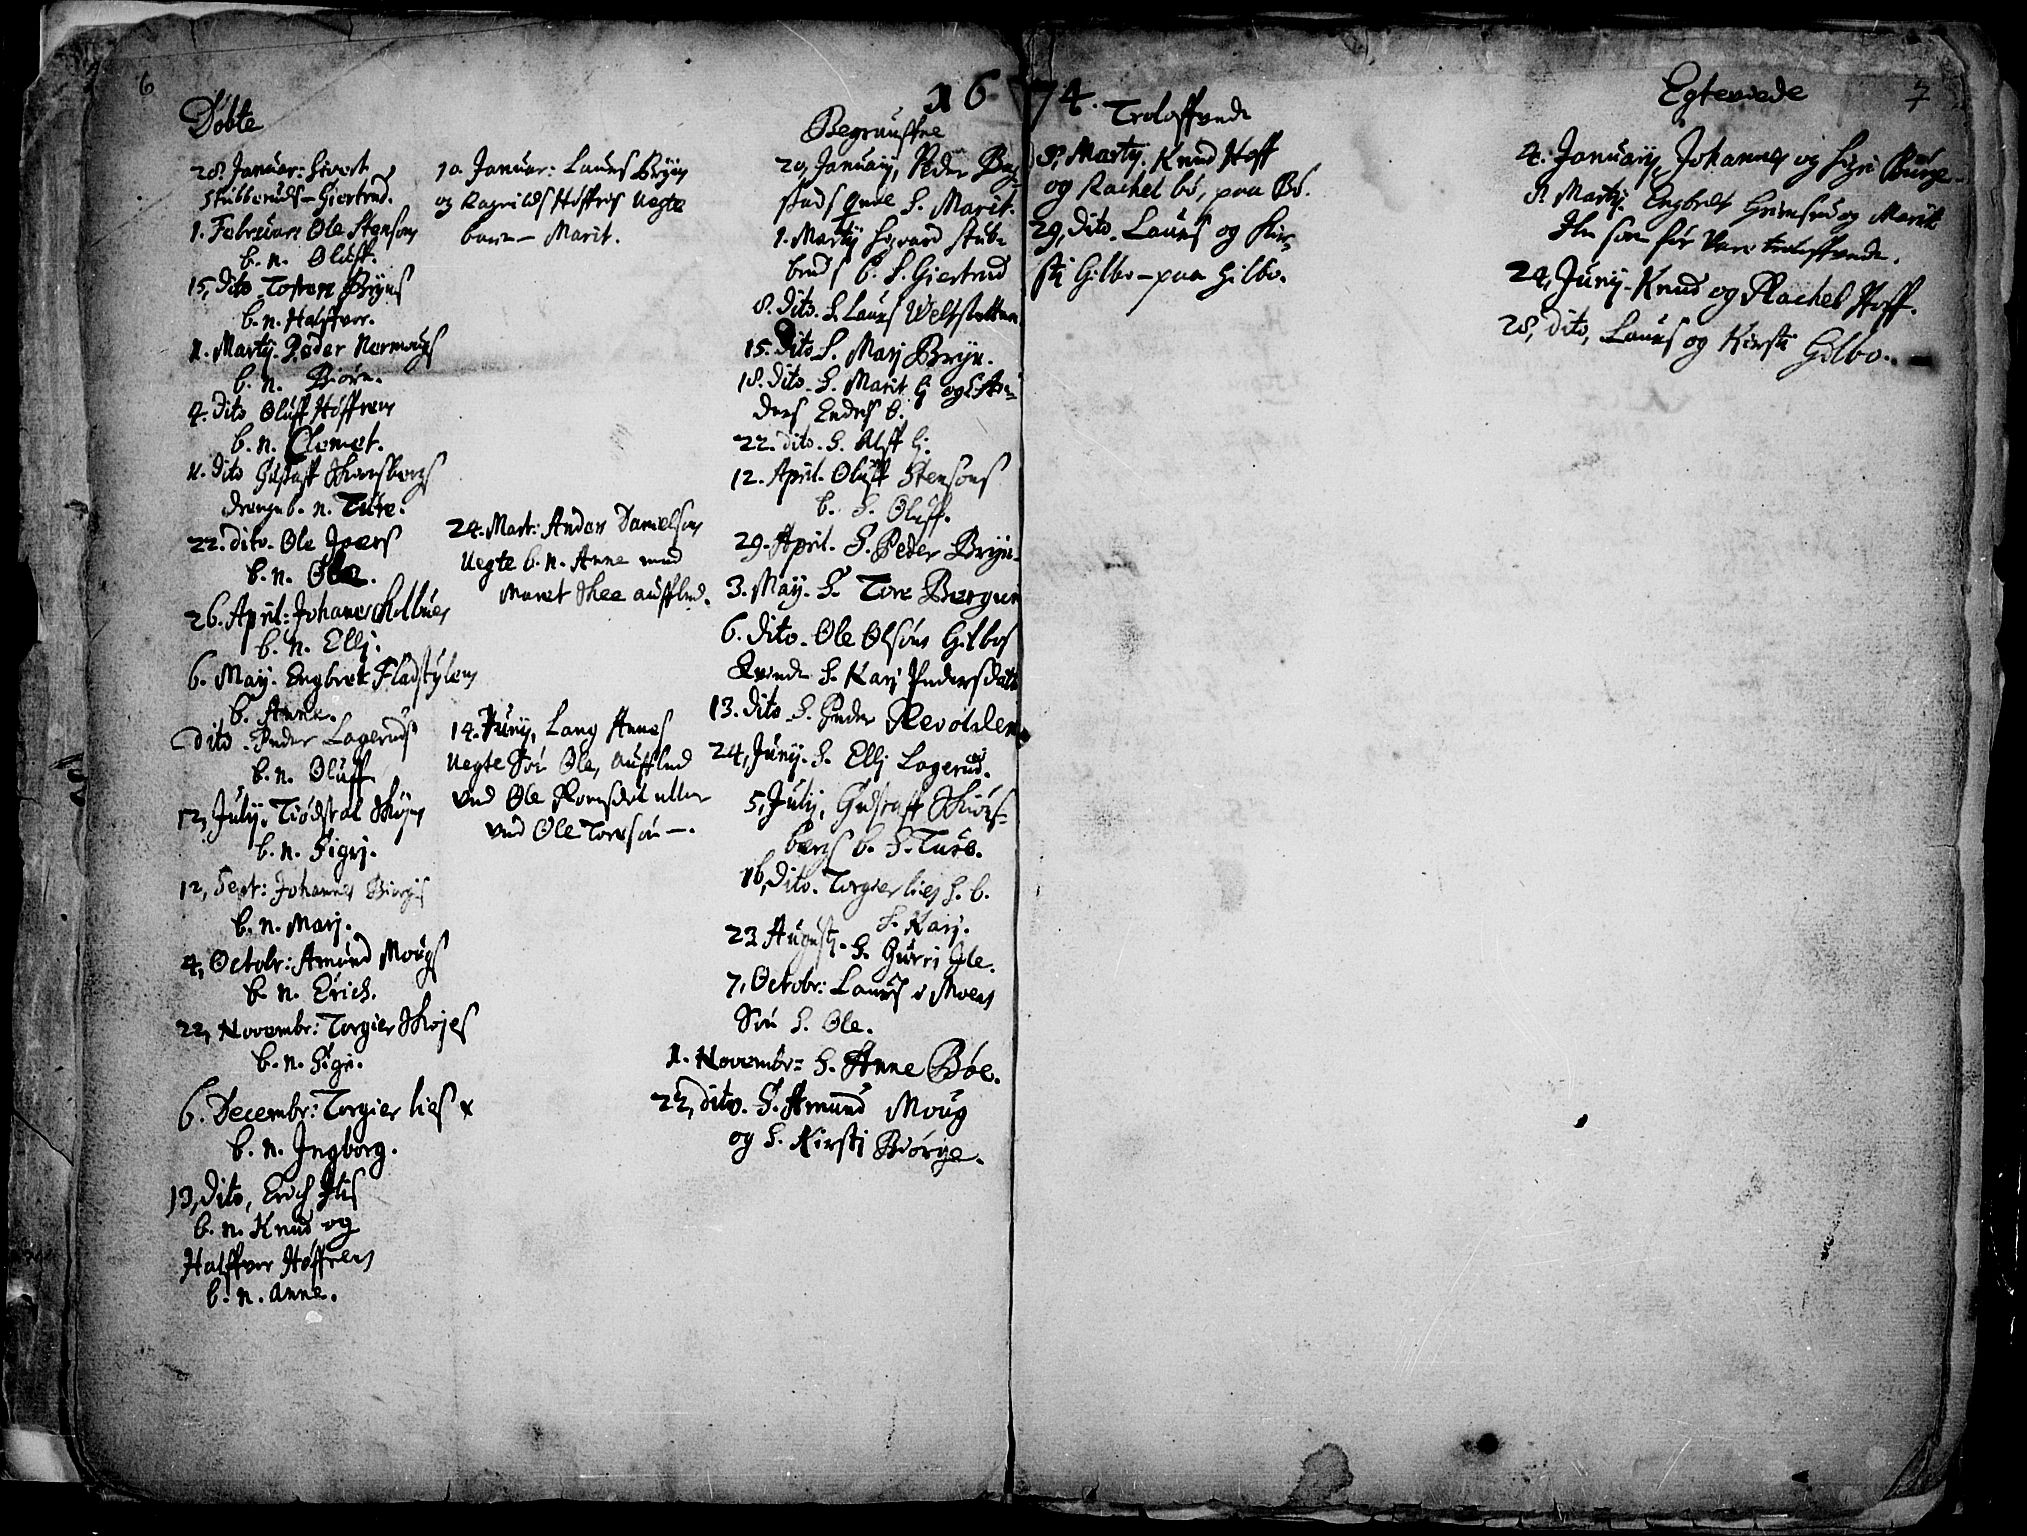 6
1674.
7
Döbte
28. Januar: Sivert
Stubberuds - Giertrud.
1. Februari Ole Stensons
b. n. Oluff.
15, dito Tosten Bryns
b. n. Halffvor.
1. Martij. Peder Nermougs
b. n. Biörn.
4. dito Oluff Höffrens
b. n. Clemet.
11. dito Gustaff
drengs b. n. Ture.
22. dito. Ole Joers
b. n. Ole.
26. April: Johannes
b. n. Ellj.
6. May. Engbret Fladstylens
b. Anne.
dito. Peder Lageruds
b. n. Oluff.
12, July. Tiödstol Skøjes
b. n. Sigrj.
12, Sept: Johannes Biørgis
b. n. Marj.
4, Octobr: Amund Mougs
b. n. Erich.
22, Novembr: Torgier Skojes
b. n. Sigri.
6. Decembr: Torgier lies x
b. n. Ingborg.
13, dito, Erich Ilis
b. n. Knud og
Halffvor Höffrens
b. n. Anne.
10. Januar: Laurs Bryns
og Ragnilds Höffres Uegte
barn - Marit.
24. Mart: Anders Danielsons
Uegte b. n. Anne med
Maret Skee aufflud.
14. Juny, Lang Annes
Uegte Sön Ole, aufflud
ved Ole Romsdol eller
ved Ole Torrsön -.
Begrauffne
20, Januarij, Peder
stads qvne S. Marit.
1. Martij Sivard Stub-
beruds b. S. Giertrud
8. dito. S. Laurs Welstetten
15. dito S. Marj Bryn.
18. dito. S. Marit Lj og S. An-
ders Endres b.
22. dito. S. Alff Lj.
12. April. Oluff Stensons
b. S. Oluff.
29. April. S. Peder Bryn.
3. May. S. Tore Bergum
6. dito. Ole Olsöns Gilbos
Kvinde S. Karj Pedersdatt
13. dito S. Peder Revolden
24, Juny. S. Ellj Lagerud.
5, July, Gustaff Skiörs-
bergs b. S. Ture.
16, dito. Torgier lies S. b.
S. Karj.
23 Augustj. S. Gurri Ile.
7, Octobr: Laurs Moens
Sön S. Ole.
1. Novembr: S. Anne Böe.
22, dito. S. Amund Moug
og S. Kirstj Biörge.
Troloffvede
8, Martij. Knud Hoff
og Rachel bö, paa Bö.
29, dito. Laurs og Kir-
stj Gilbo - paa Gilbo.
Egteviede
4. Januarij, Johannes og Sigri Biørge.
8 Martij. Engbret Grimsrud og Marit
Ile som för vare troloffvede.
24, Juny. Knud og Rachel Hoff.
28, dito, Laurs og Kirsti Gilbo.